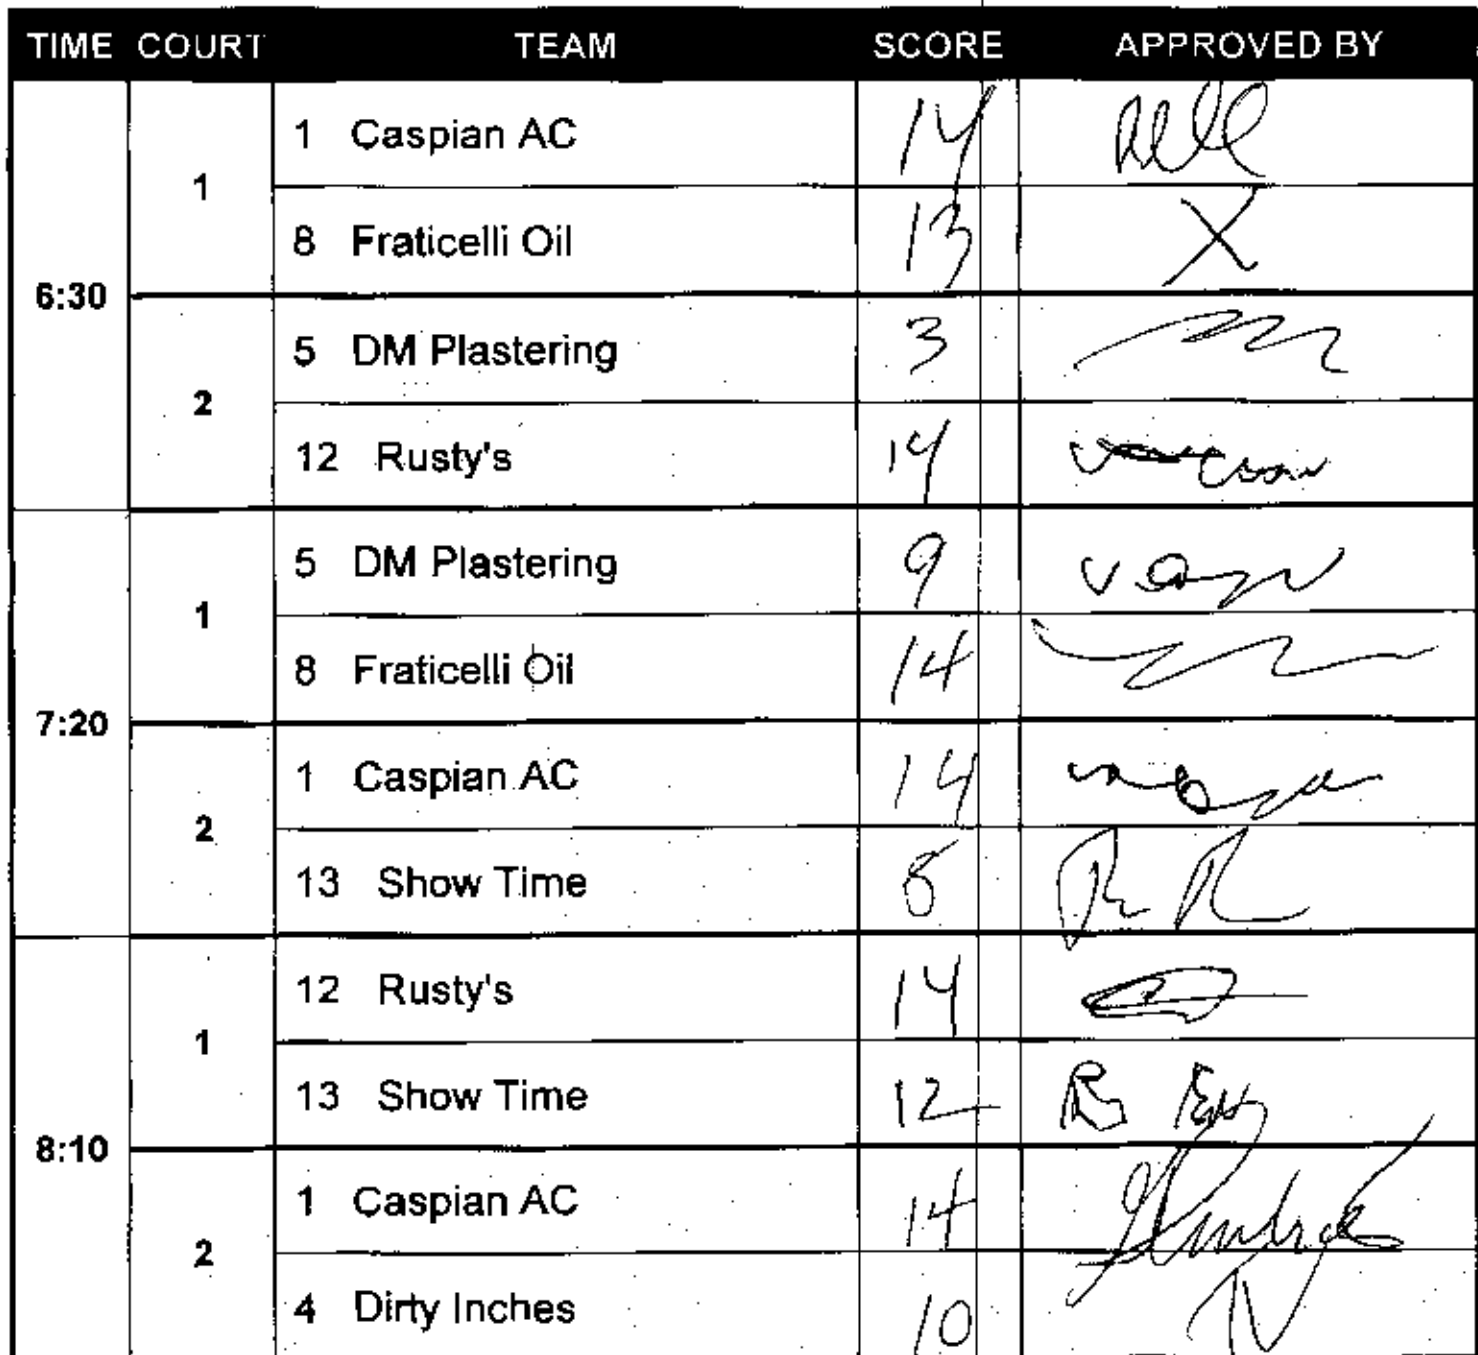 TIME COURT TEAM SCORE APPROVED BY
6:30
1
1 Caspian AC 14
8 Fraticelli Oil 13 X
2
5 DM Plastering 3
12 Rusty's 14
7:20
1
5 DM Plastering 9
8 Fraticelli Oil 14
2
1 Caspian AC 14
13 Show Time 8
8:10
1
12 Rusty's 14
13 Show Time 12
2
1 Caspian AC 14
4 Dirty Inches 10